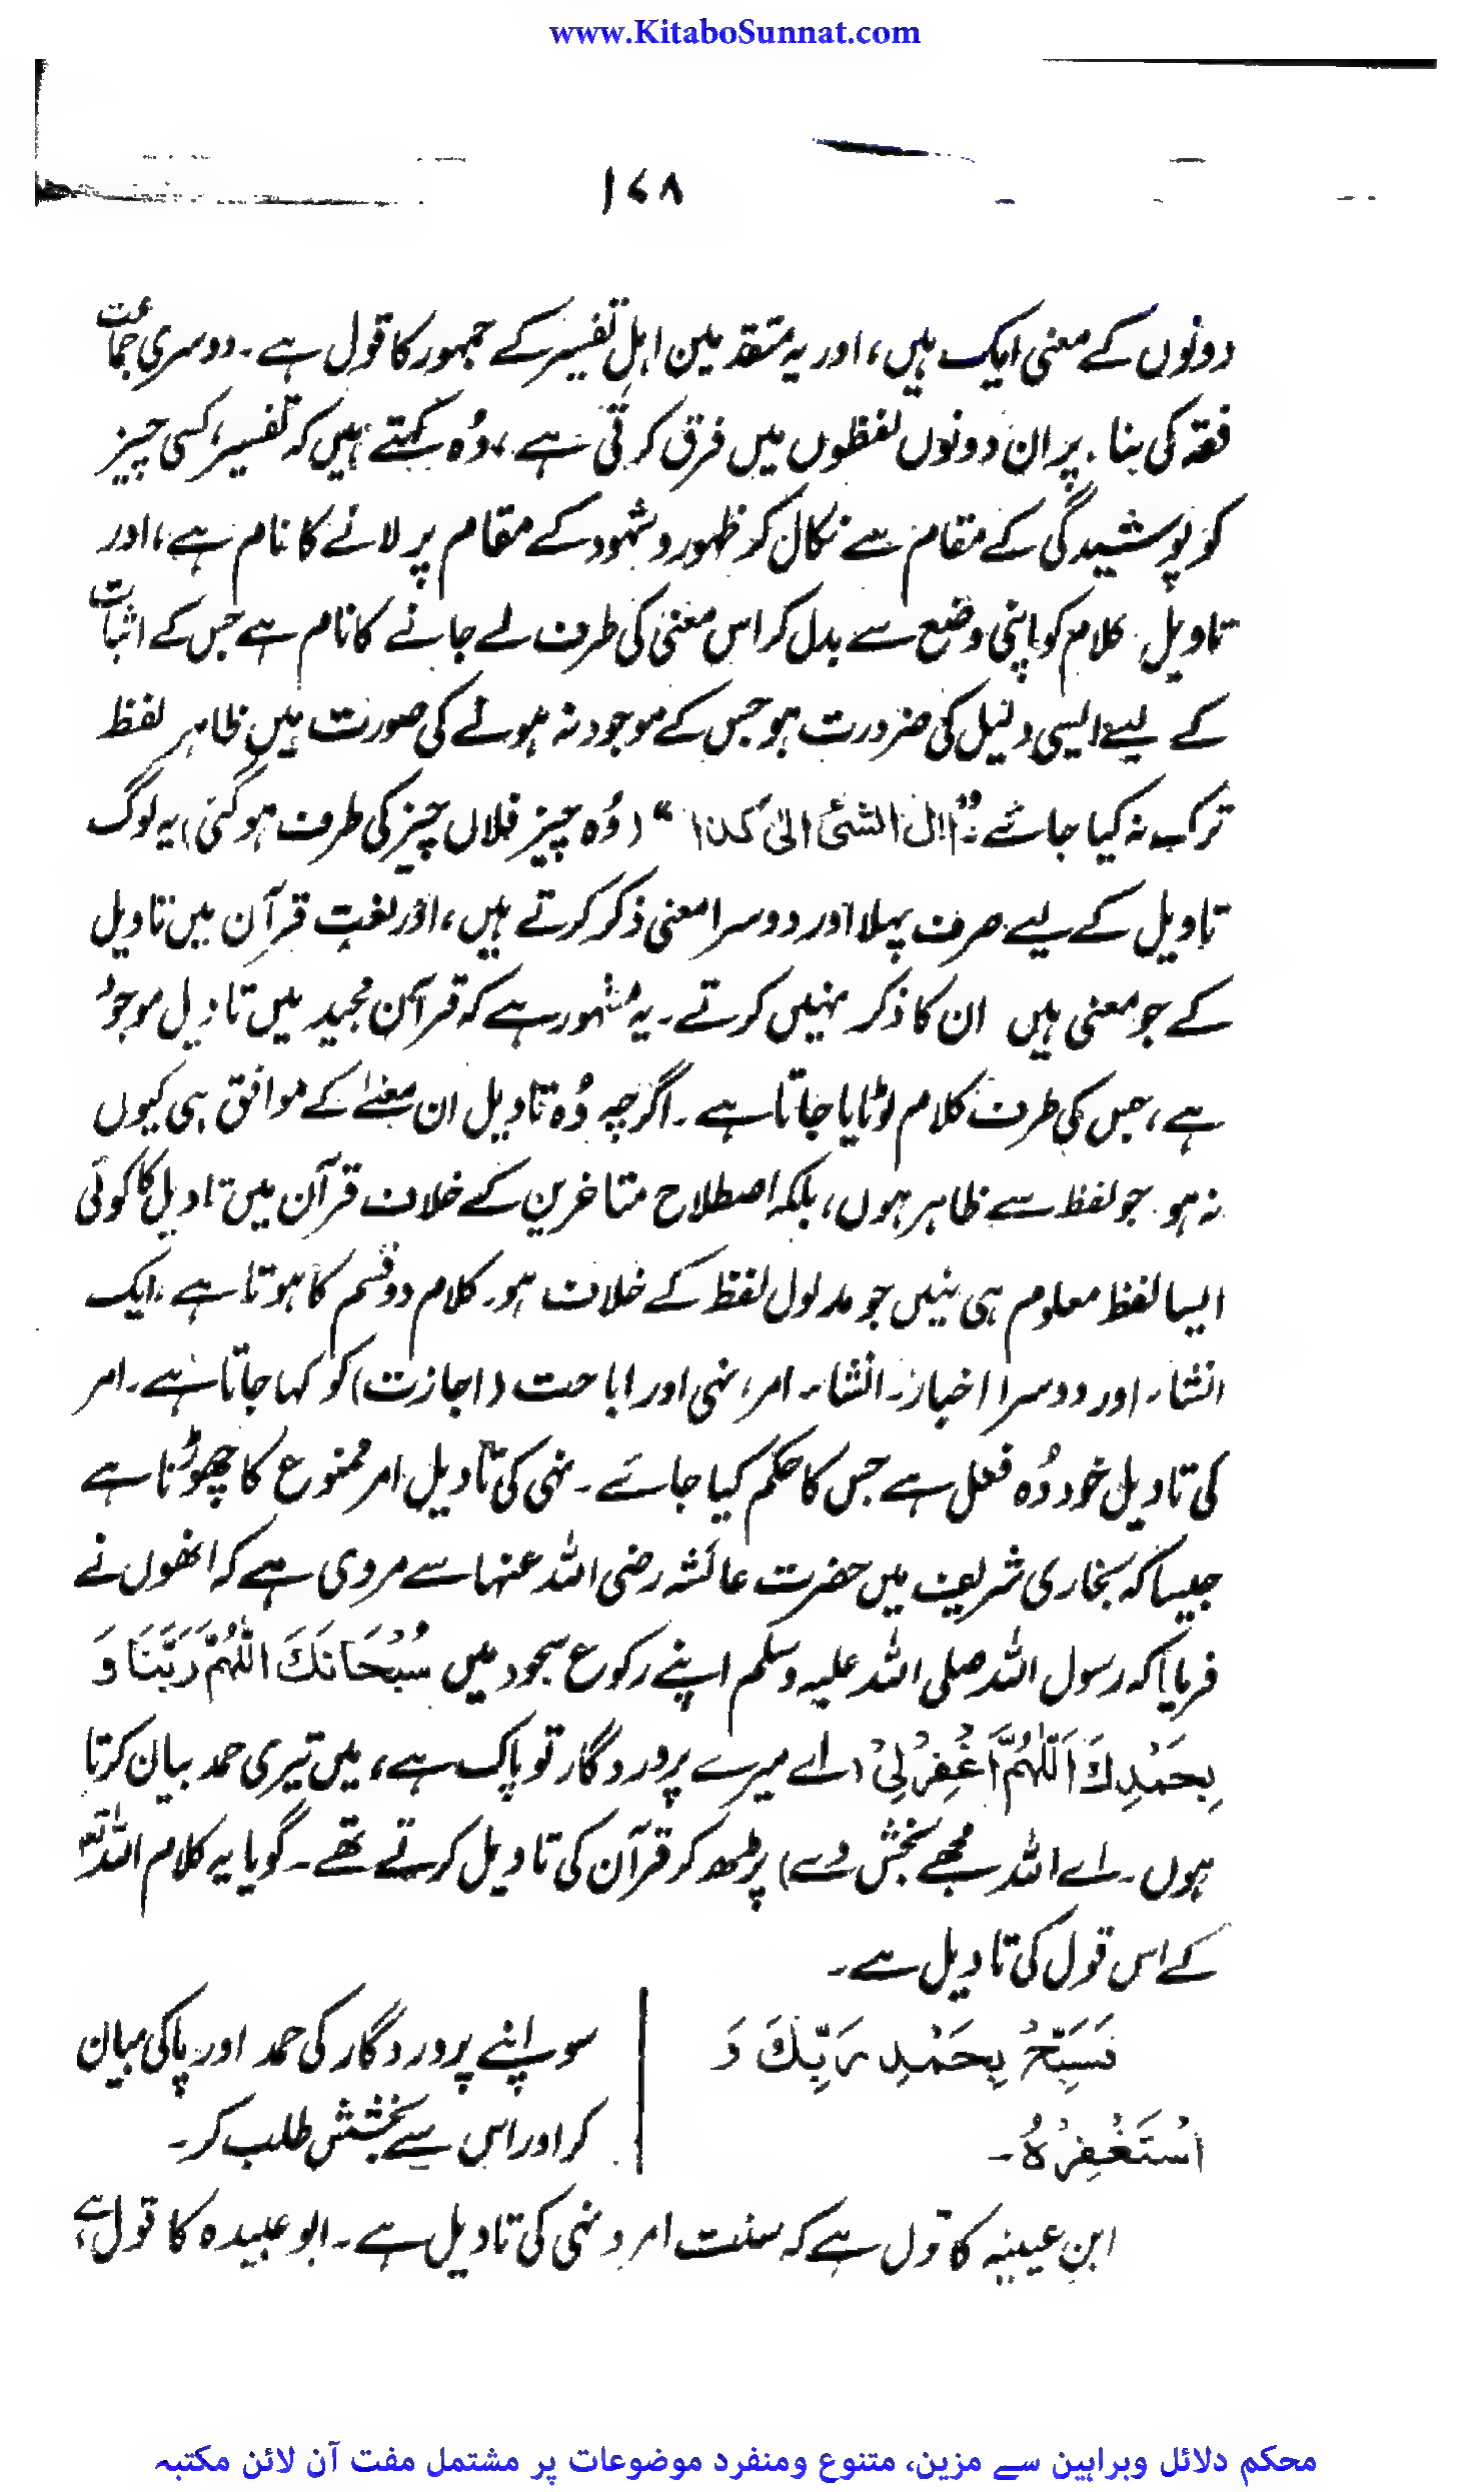 www.KitaboSunnat.com
۱۷۸
دونوں کے معنی ایک ہیں، اور یہ متقدمین اہل تفسیر کے جمہور کا قول ہے۔ دوسری جماعت
فقہ کی بناء پر ان دونوں لفظوں میں فرق کرتی ہے، وُہ کہتے ہیں کہ تفسیر، کسی چیز
کو پوشیدگی کے مقام سے نکال کر ظہور و شہود کے مقام پر لانے کا نام ہے، اور
تاویل، کلام کو اپنی وضع سے بدل کر اس معنی کی طرف لے جانے کا نام ہے جس کے اثبات
کے لیے ایسی دلیل کی ضرورت ہو جس کے موجود نہ ہونے کی صورت میں ظاہر لفظ
ترک نہ کیا جائے۔ ”اٰل الشئ الیٰ کذا“ (وُہ چیز فلاں چیز کی طرف ہو گئی) یہ لوگ
تاویل کے لیے صرف پہلا اور دوسرا معنی ذکر کرتے ہیں، اور لغتِ قرآن میں تاویل
کے جو معنی ہیں ان کا ذکر نہیں کرتے۔ یہ مشہور ہے کہ قرآن مجید میں تاویل موجود
ہے، جس کی طرف کلام لوٹایا جاتا ہے۔ اگرچہ وُہ تاویل ان معنٰے کے موافق ہی کیوں
نہ ہو جو لفظ سے ظاہر ہوں، بلکہ اصطلاح متاخرین کے خلاف قرآن میں تاویل کا کوئی
ایسا لفظ معلوم ہی نہیں جو مدلول لفظ کے خلاف ہو۔ کلام دو قسم کا ہوتا ہے، ایک
انشاء اور دوسرا اخبار۔ انشاء۔ امر، نہی اور اباحت (اجازت) کو کہا جاتا ہے۔ امر
کی تاویل خود وُہ فعل ہے جس کا حکم کیا جائے۔ نہی کی تاویل امر ممنوع کا چھوڑنا ہے
جیسا کہ بخاری شریف میں حضرت عائشہ رضی اللہ عنہا سے مروی ہے کہ انھوں نے
فرمایا کہ رسول اللہ صلی اللہ علیہ وسلم اپنے رکوع سجود میں سُبْحَانَكَ اللّٰهُمَّ رَبَّنَا وَ
بِحَمْدِكَ اَللّٰهُمَّ اغْفِرْلِىْ (اے میرے پروردگار تو پاک ہے، میں تیری حمد بیان کرتا
ہوں۔ اے اللہ مجھے بخش دے) پڑھ کر قرآن کی تاویل کرتے تھے۔ گویا یہ کلام اللہ تعالیٰ
کے اس قول کی تاویل ہے۔
فَسَبِّحْ بِحَمْدِ رَبِّكَ وَ
اسْتَغْفِرْهُ۔
سو اپنے پروردگار کی حمد اور پاکی بیان
کر اور اس سے بخشش طلب کر۔
ابن عیینہ کا قول ہے کہ سنت امر و نہی کی تاویل ہے۔ ابو عبیدہ کا قول ہے،
محکم دلائل وبراہین سے مزین، متنوع ومنفرد موضوعات پر مشتمل مفت آن لائن مکتبہ